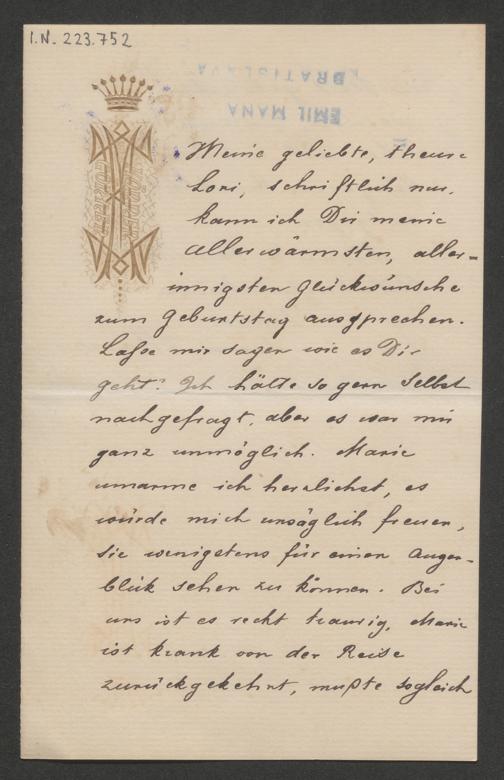 I.N. 223.752
EMIL MANA
BRATISLAVA
Meine geliebte, theure
Lori, schriftlich nur
kann ich Dir meine
allerwärmsten, aller-
innigsten Glückwünsche
zum Geburtstag aussprechen.
Lasse mir sagen wie es Dir
geht? Ich hätte so gern selbst
nachgefragt, aber es war mir
ganz unmöglich. Marie
umarme ich herzlichst, es
würde mich unsäglich freuen,
sie wenigstens für einen Augen-
blick sehen zu können. Bei
uns ist es recht traurig, Marie
ist krank von der Reise
zurückgekehrt, mußte sogleich